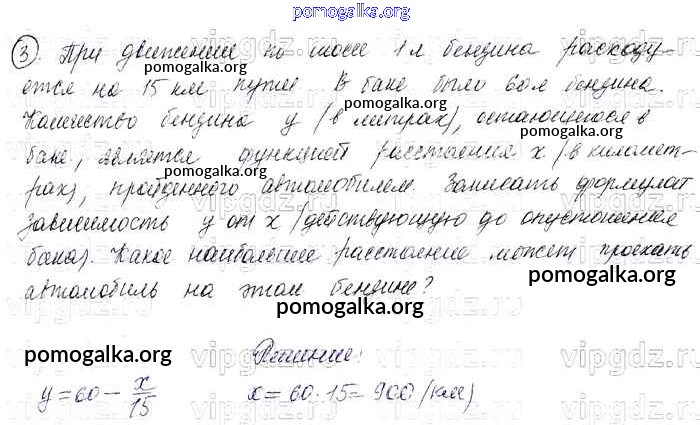 pomogalka.org
③. При движении по шоссе 1 л бензина расходу-
pomogalka.org
ется на 15 км пути. В баке было 60 л бензина.
pomogalka.org
Количество бензина y (в литрах), остающегося в
pomogalka.org
баке, является функцией расстояния x (в километ-
pomogalka.org
рах), пройденного автомобилем. Записать формулой
зависимость y от x (действующую до опустошения
pomogalka.org
бака). Какое наибольшее расстояние может проехать
pomogalka.org
автомобиль на этом бензине?
pomogalka.org
Решение:
pomogalka.org
y = 60 - x/15 x = 60 · 15 = 900 (км)
pomogalka.org
vipgdz.ru